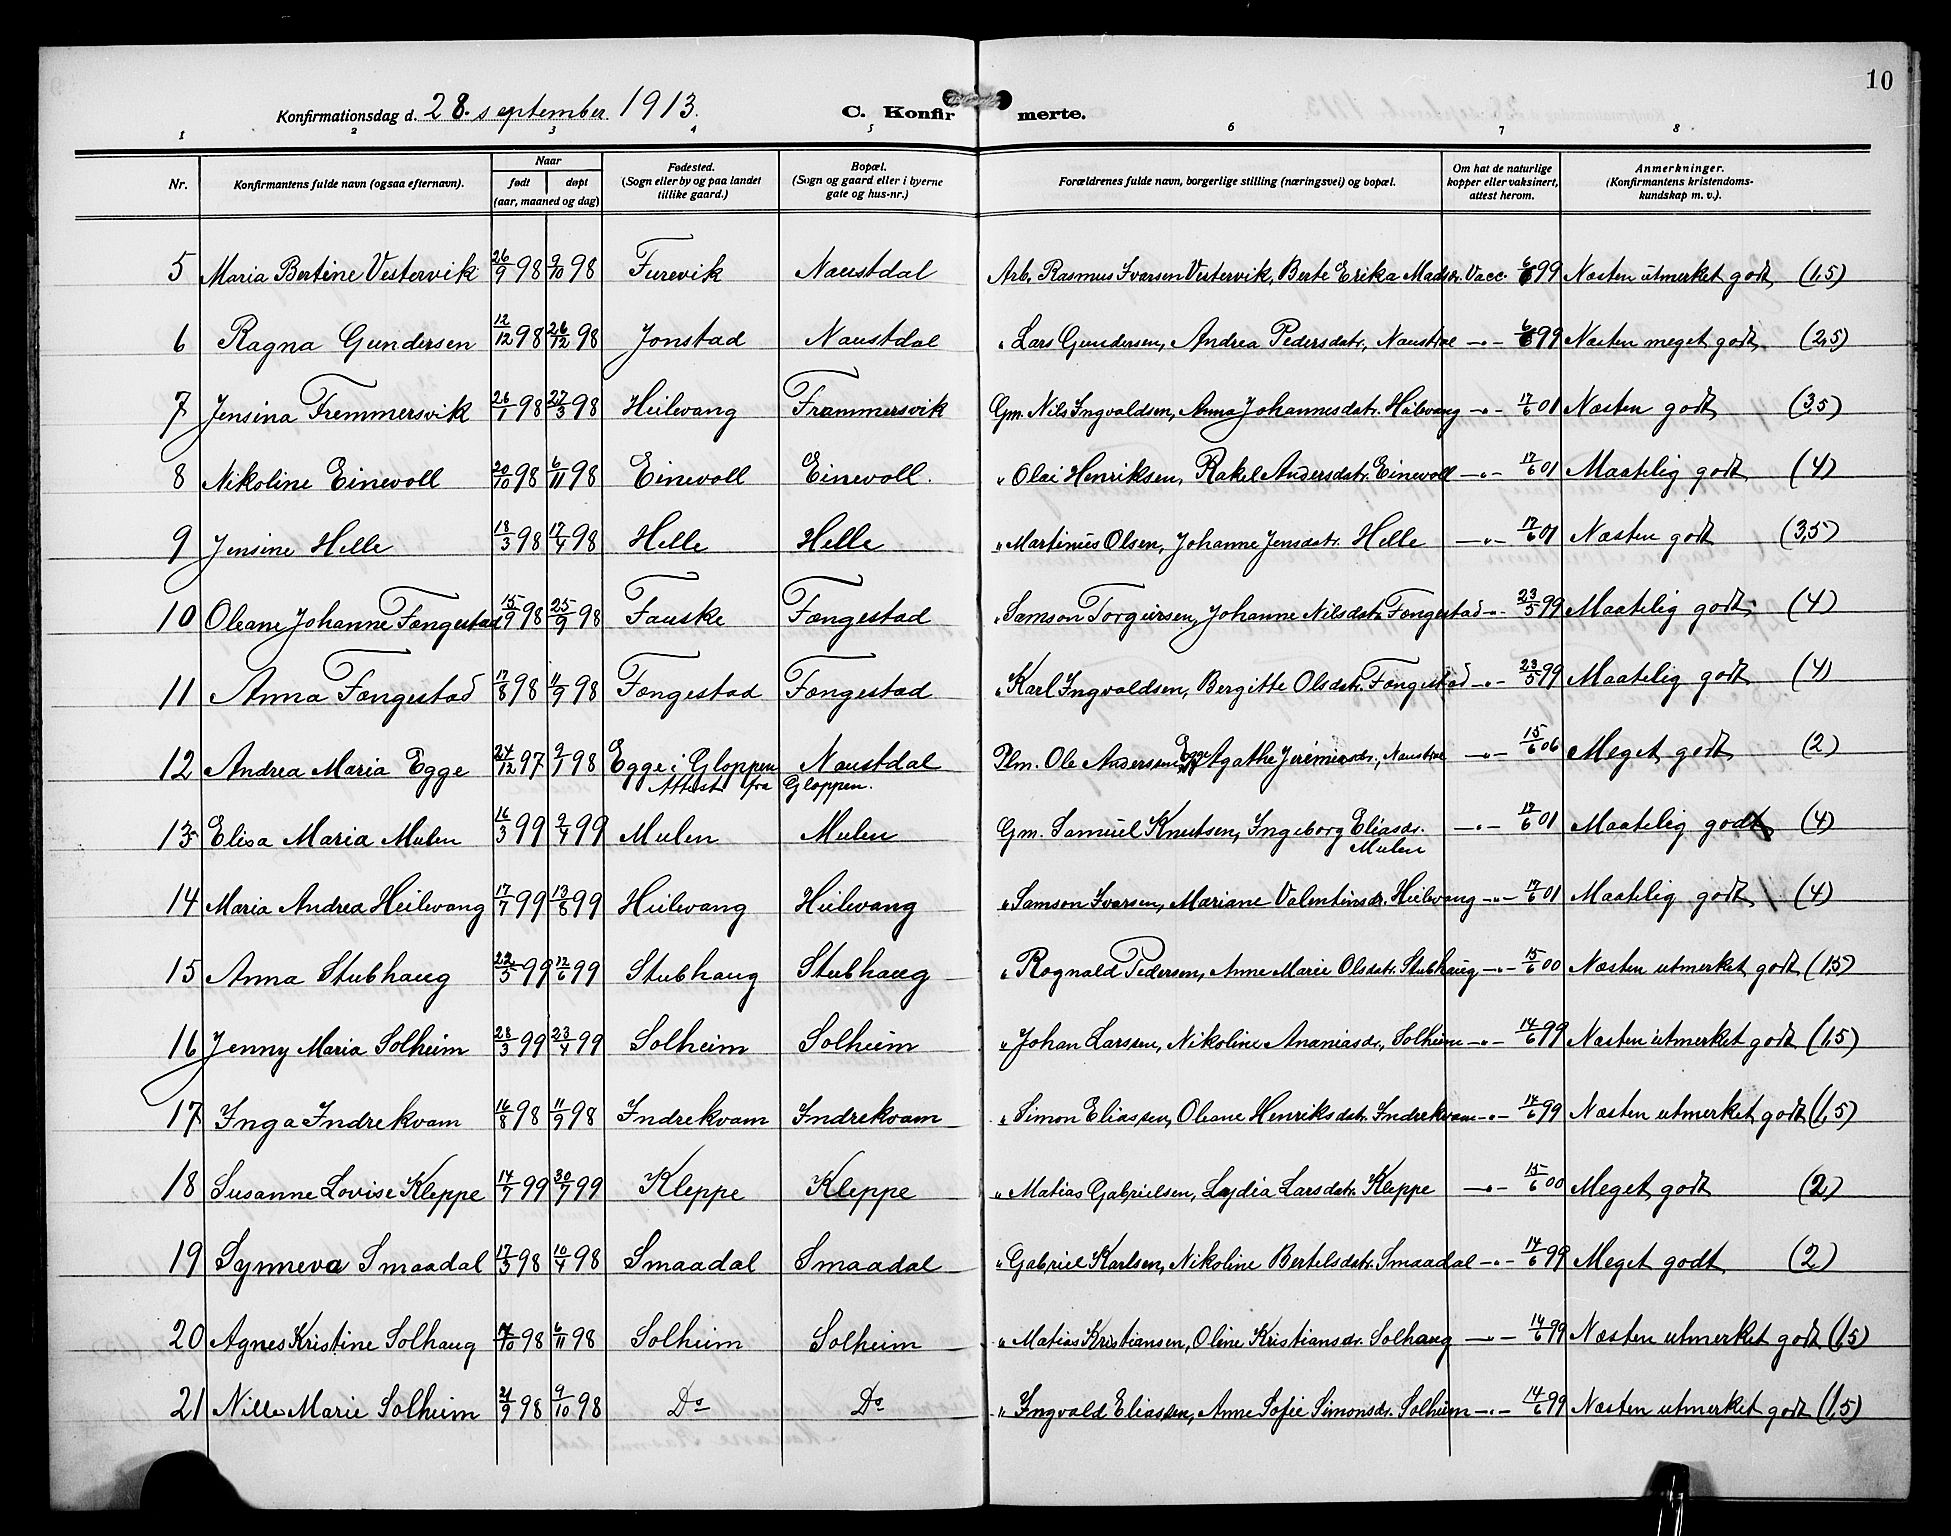 10
Konfirmationsdag d. 28. september 1913. C. Konfirmerte.
1 2 3 4 5 6 7 8
Nr. Konfirmantens fulde navn (ogsaa efternavn). Naar født døpt (aar, maaned og dag) Fødested. (Sogn eller by og paa landet tillike gaard.) Bopæl. (Sogn og gaard eller i byerne gate og hus-nr.) Forældrenes fulde navn, borgerlige stilling (næringsvei) og bopæl. Om hat de naturlige kopper eller vaksinert, attest herom. Anmerkninger. (Konfirmantens kristendoms-kundskap m. v.).
5 Maria Bertine Vestervik 26/9 98 9/10 98 Furevik Naustdal Arb. Rasmus Iversen Vestervik, Berte Erika Madsdr. Vacc. 6/6 99 Næsten utmerket godt (1,5)
6 Ragna Gundersen 12/12 98 26/12 98 Jonstad Naustdal " Lars Gundersen, Andrea Pedersdatr., Naustdal —"— 6/6 99 Næsten meget godt. (2,5)
7 Jensina Fremmersvik 26/1 98 27/3 98 Heilevang Frammersvik Gm. Nils Ingvaldsen, Anna Johannesdatr. Heilevang —"— 17/6 01 Næsten godt (3,5)
8 Nikoline Einevoll 20/10 98 6/11 98 Einevoll Einevoll. " Olai Henriksen, Rakel Andersdatr. Einevoll —"— 17/6 01 Maatelig godt (4)
9 Jensine Helle 18/3 98 17/4 98 Helle Helle " Martinus Olsen, Johanne Jensdatr. Helle —"— 17/6 01 Næsten godt (3,5)
10 Oleane Johanne Fængestad 15/9 98 25/9 98 Fauske Fængestad " Samson Torgersen, Johanne Nilsdatr. Fængestad —"— 23/5 99 Maatelig godt. (4)
11 Anna Fængestad 17/8 98 11/9 98 Fængestad Fængestad " Karl Ingvaldsen, Bergitte Olsdatr. Fængestad —"— 23/5 99 Maatelig godt (4)
12 Andrea Maria Egge 27/12 97 9/1 98 Egge i Gloppen Naustdal Plm. Ole Andersen Egge, Agathe Jeremiasdr., Naustdal —"— 15/6 06 Meget godt (2)
Attest fra Gloppen.
13 Elisa Maria Mulen 16/3 99 2/4 99 Mulen Mulen Gm. Samuel Knutsen, Ingeborg Eliasdr. —"— 17/6 01 Maatelig godt (4)
Mulen
14 Maria Andrea Heilevang 17/7 99 13/8 99 Heilevang Heilevang " Samson Iversen, Mariane Valentinsdr. Heilevang —"— 17/6 01 Maatelig godt (4)
15 Anna Stubhaug 22/5 99 12/6 99 Stubhaug Stubhaug " Rognald Pedersen, Anne Marie Olsdatr. Stubhaug —"— 15/6 00 Næsten utmerket godt (1,5)
16 Jenny Maria Solheim 28/3 99 23/4 99 Solheim Solheim " Johan Larssen, Nikoline Ananiasdr., Solheim —"— 14/6 99 Næsten utmerket godt (1,5)
17 Inga Indrekvam 16/8 98 11/9 98 Indrekvam Indrekvam " Simon Eliassen, Oleane Henriksdatr. Indrekvam —"— 14/6 99 Næsten utmerket godt (1,5)
18 Susanne Lovise Kleppe 14/7 99 30/7 99 Kleppe Kleppe " Matias Gabrielsen, Lydia Larsdatr. Kleppe —"— 15/6 00 Meget godt (2)
19 Synneva Smaadal 17/3 98 10/4 98 Smaadal Smaadal " Gabriel Karlsen, Nikoline Bertelsdatr. Smaadal —"— 14/6 99 Meget godt (2)
20 Agnes Kristine Solhaug 7/10 98 6/11 98 Solheim Solheim " Matias Kristiansen, Oline Kristiansdr. Solhaug —"— 14/6 99 Næsten utmerket godt (1,5)
21 Nille Marie Solheim 21/9 98 9/10 98 Do Do " Ingvald Eliassen, Anne Sofie Simonsdr. Solheim —"— 14/6 99 Næsten utmerket godt (1,5)